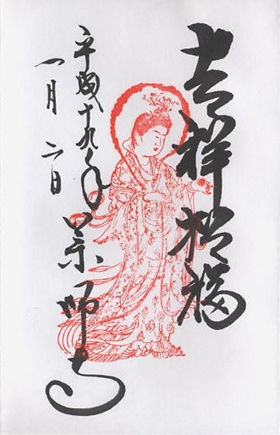 吉祥招福
平成十九年
一月二日
薬師寺